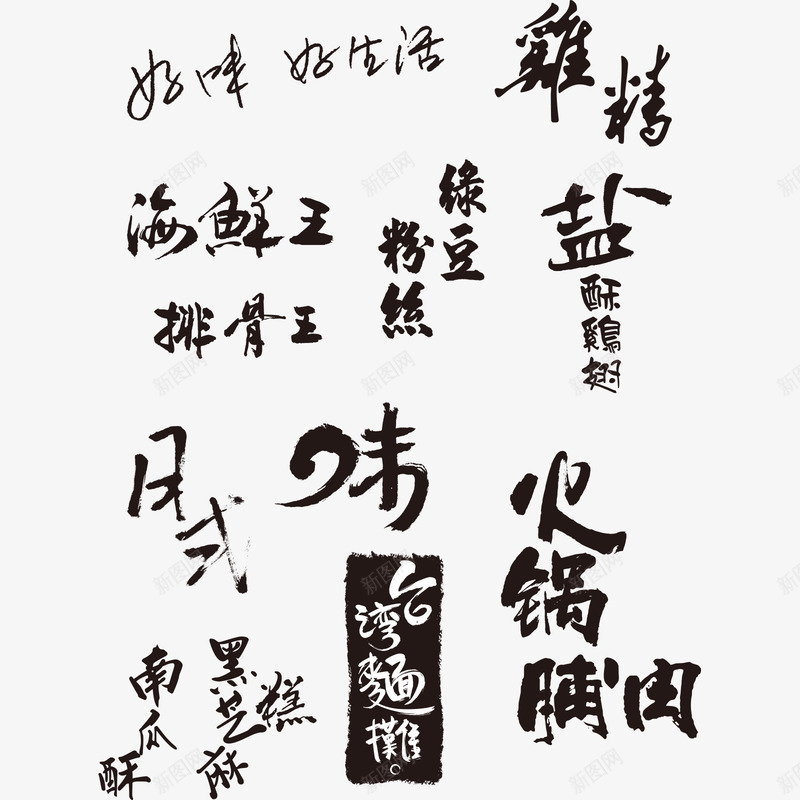 好味 好生活
雞精
海鮮王
排骨王
綠豆
粉絲
盐
酥鷄翅
日式
味
火锅
脯肉
台湾麵攤
南瓜酥
黑芝麻
糕
新图网